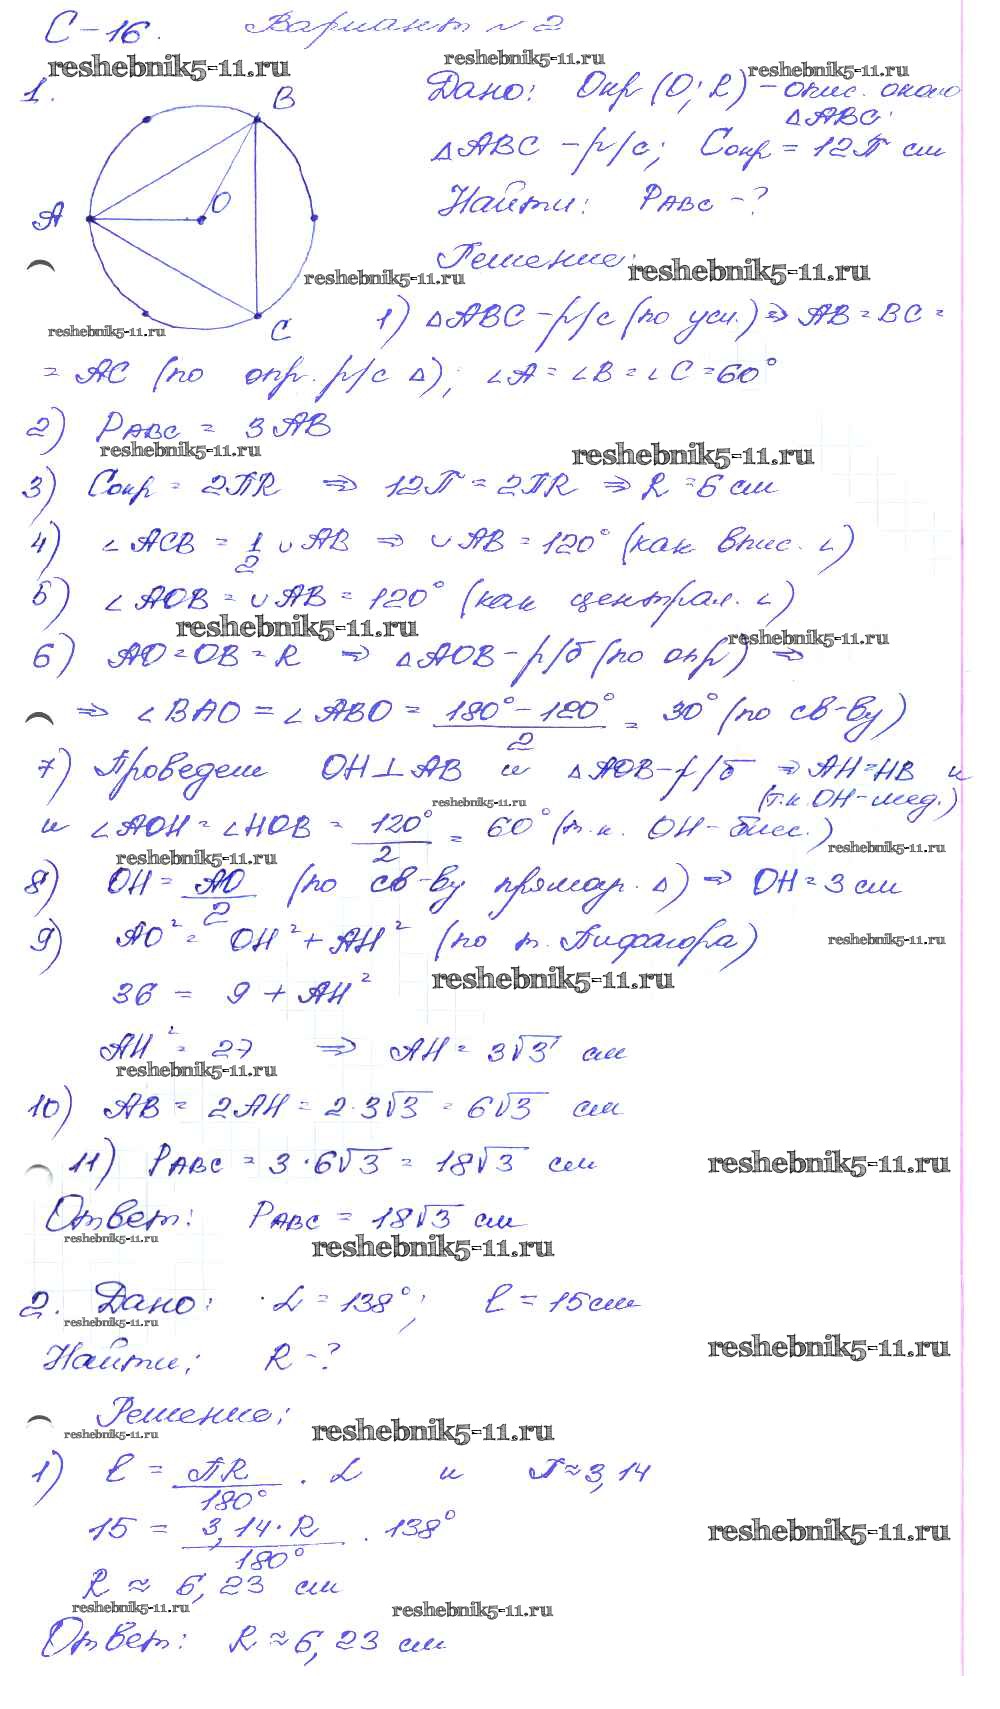 С-16. Вариант №2
reshebnik5-11.ru reshebnik5-11.ru reshebnik5-11.ru
1. Дано: Окр (O; R) - опис. около
△ABC.
△ABC - р/с; Cокр = 12π см
Найти: PABC - ?
Решение:
reshebnik5-11.ru reshebnik5-11.ru
A B C O
reshebnik5-11.ru
1) △ABC - р/с (по усл.) ⇒ AB = BC =
= AC (по опр. р/с △); ∠A = ∠B = ∠C = 60°
2) PABC = 3AB
reshebnik5-11.ru reshebnik5-11.ru
3) Cокр = 2πR ⇒ 12π = 2πR ⇒ R = 6 см
4) ∠ACB = 1/2 ∪AB ⇒ ∪AB = 120° (как впис. ∠)
5) ∠AOB = ∪AB = 120° (как централ. ∠)
reshebnik5-11.ru reshebnik5-11.ru
6) AO = OB = R ⇒ △AOB - р/б (по опр) ⇒
⇒ ∠BAO = ∠ABO = (180° - 120°)/2 = 30° (по св-ву)
7) Проведем OH ⊥ AB и △AOB - р/б ⇒ AH = HB и
(т.к. OH - мед.)
reshebnik5-11.ru
и ∠AOH = ∠HOB = 120°/2 = 60° (т.к. OH - бисс.)
reshebnik5-11.ru reshebnik5-11.ru
8) OH = AO/2 (по св-ву прямоуг. △) ⇒ OH = 3 см
9) AO² = OH² + AH² (по т. Пифагора)
reshebnik5-11.ru
reshebnik5-11.ru
36 = 9 + AH²
AH² = 27 ⇒ AH = 3√3 см
reshebnik5-11.ru
10) AB = 2AH = 2·3√3 = 6√3 см
11) PABC = 3·6√3 = 18√3 см
reshebnik5-11.ru
Ответ: PABC = 18√3 см
reshebnik5-11.ru reshebnik5-11.ru
2. Дано: α = 138°; ℓ = 15 см
reshebnik5-11.ru reshebnik5-11.ru
Найти: R - ?
Решение:
reshebnik5-11.ru reshebnik5-11.ru
1) ℓ = πR/180° · α и π ≈ 3,14
15 = 3,14·R/180° · 138°
reshebnik5-11.ru
R ≈ 6,23 см
reshebnik5-11.ru reshebnik5-11.ru
Ответ: R ≈ 6,23 см